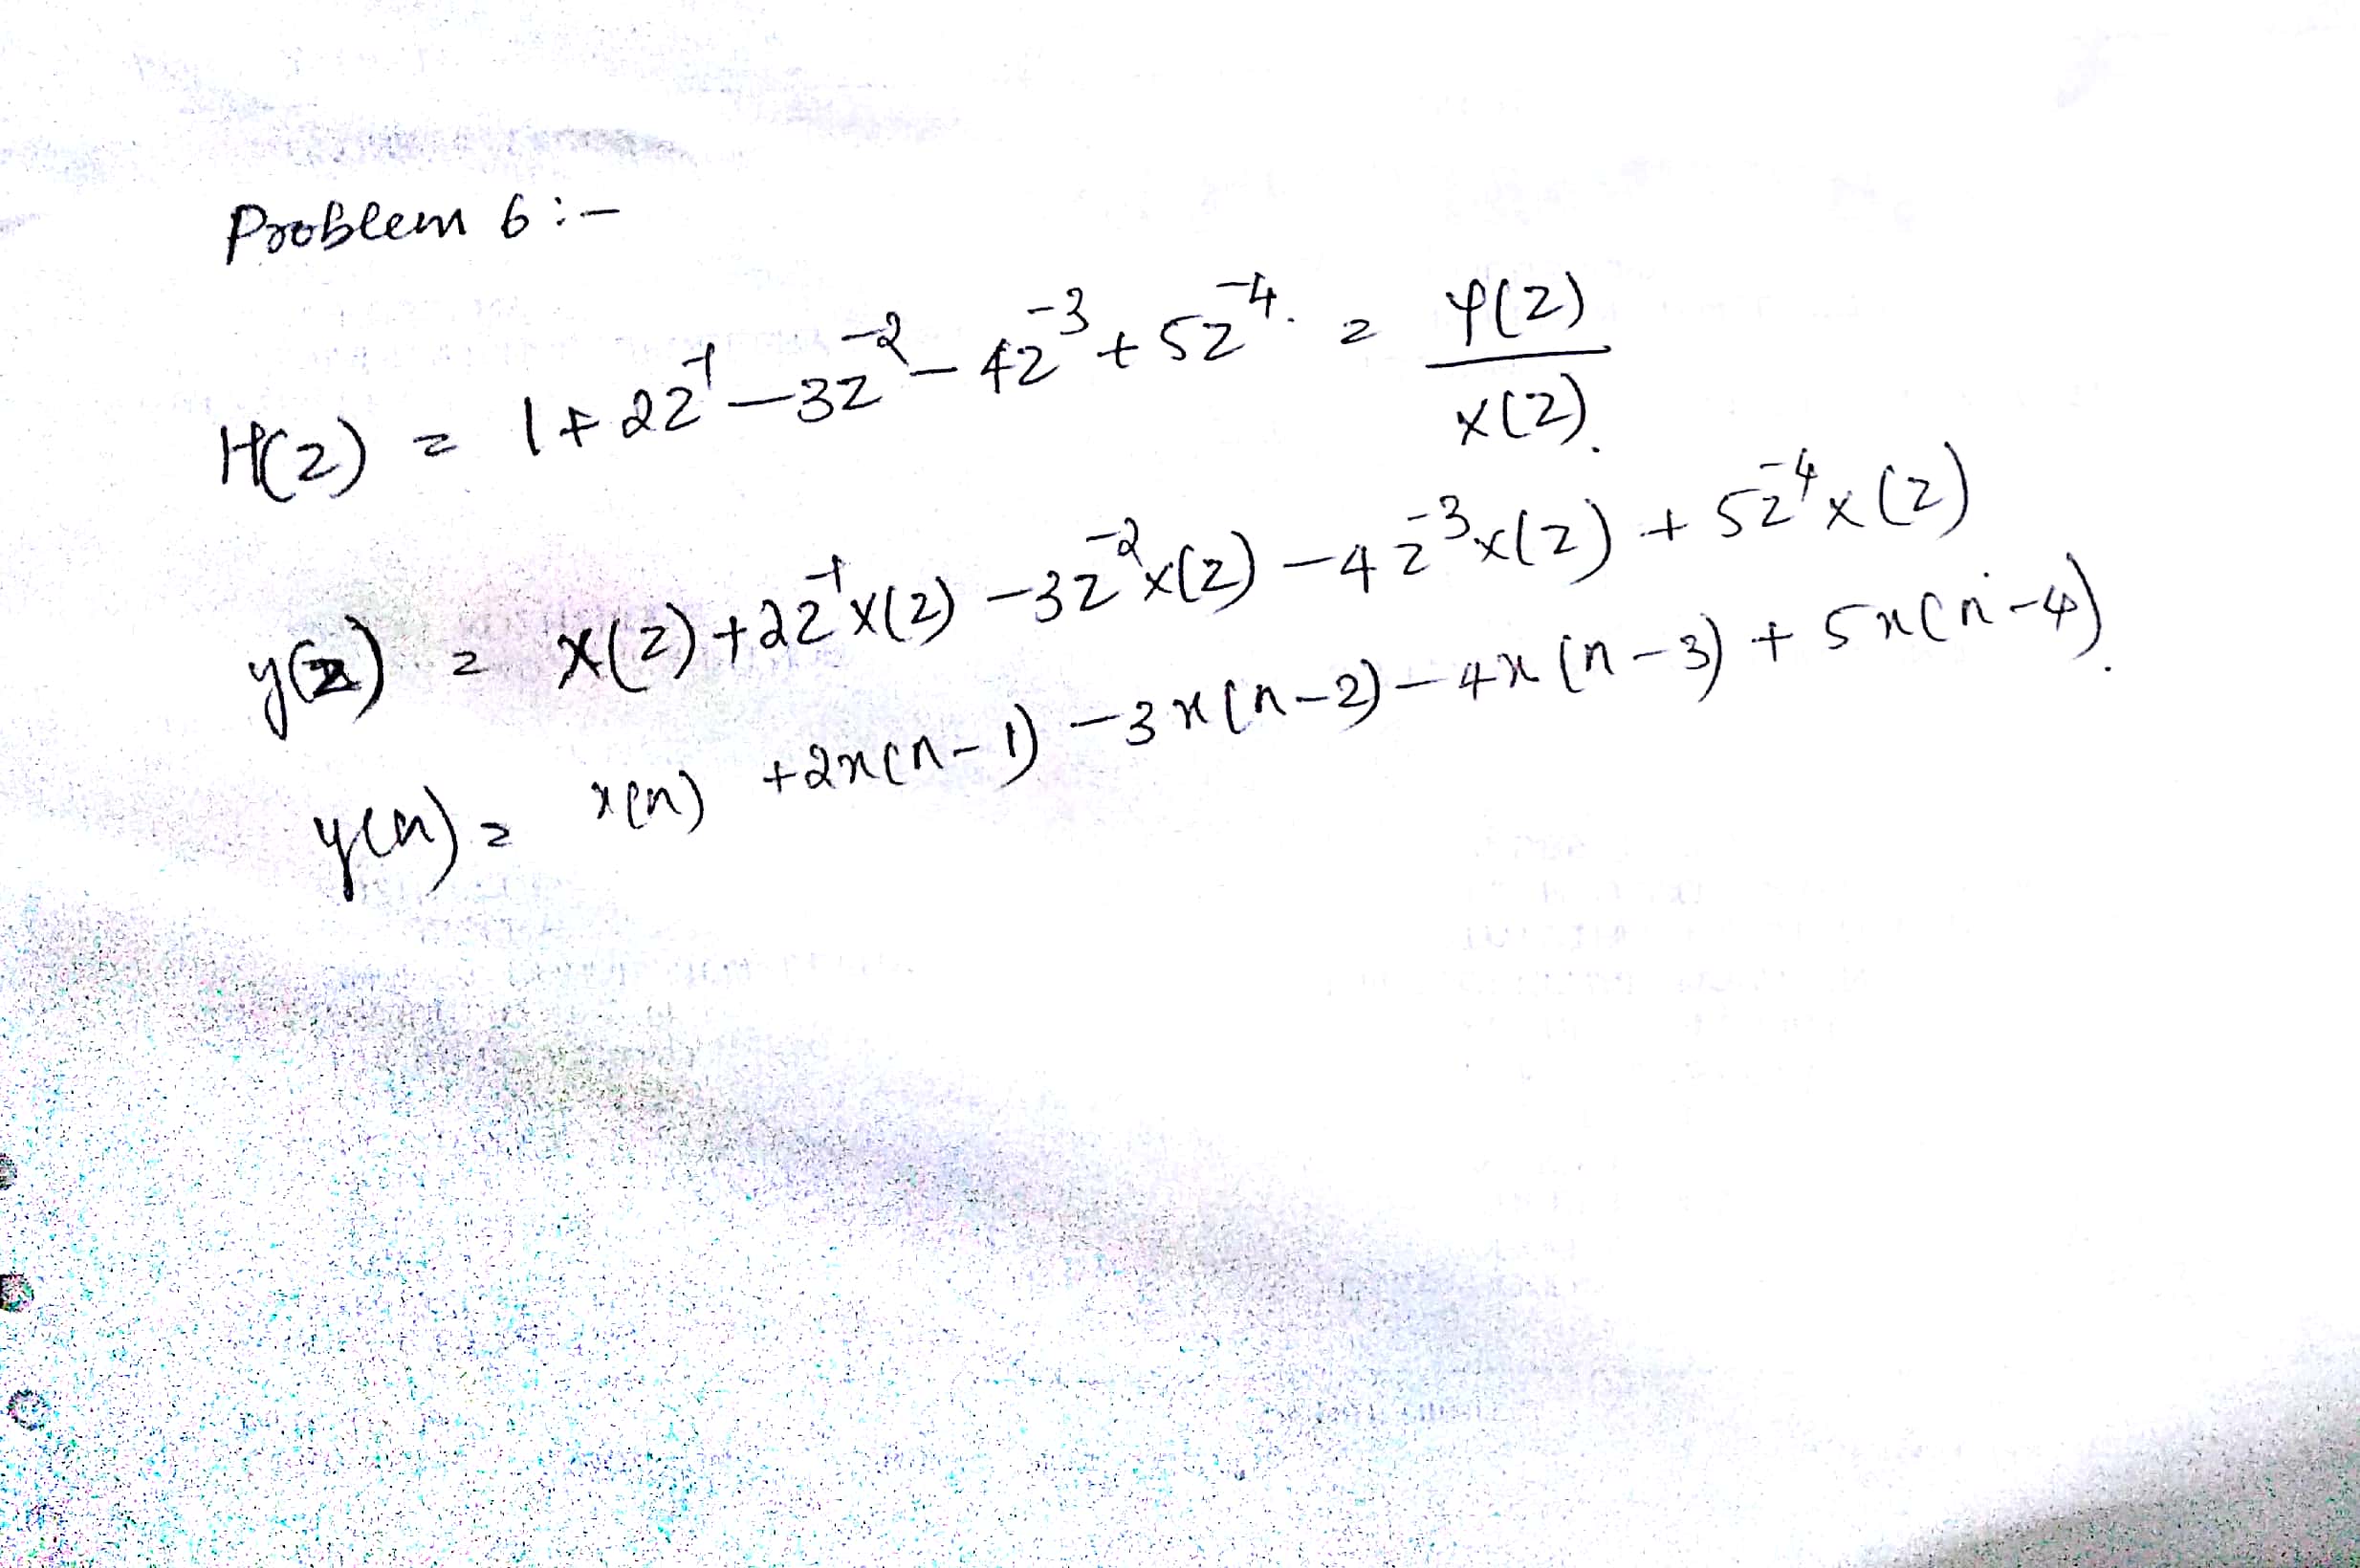 Problem 6 :-
H(z) = 1 + 2z⁻¹ - 3z⁻² - 4z⁻³ + 5z⁻⁴. = Y(z) / X(z).
y(z) = X(z) + 2z⁻¹X(z) - 3z⁻²X(z) - 4z⁻³X(z) + 5z⁻⁴X(z)
y(n) = x(n) + 2x(n-1) - 3x(n-2) - 4x(n-3) + 5x(n-4).